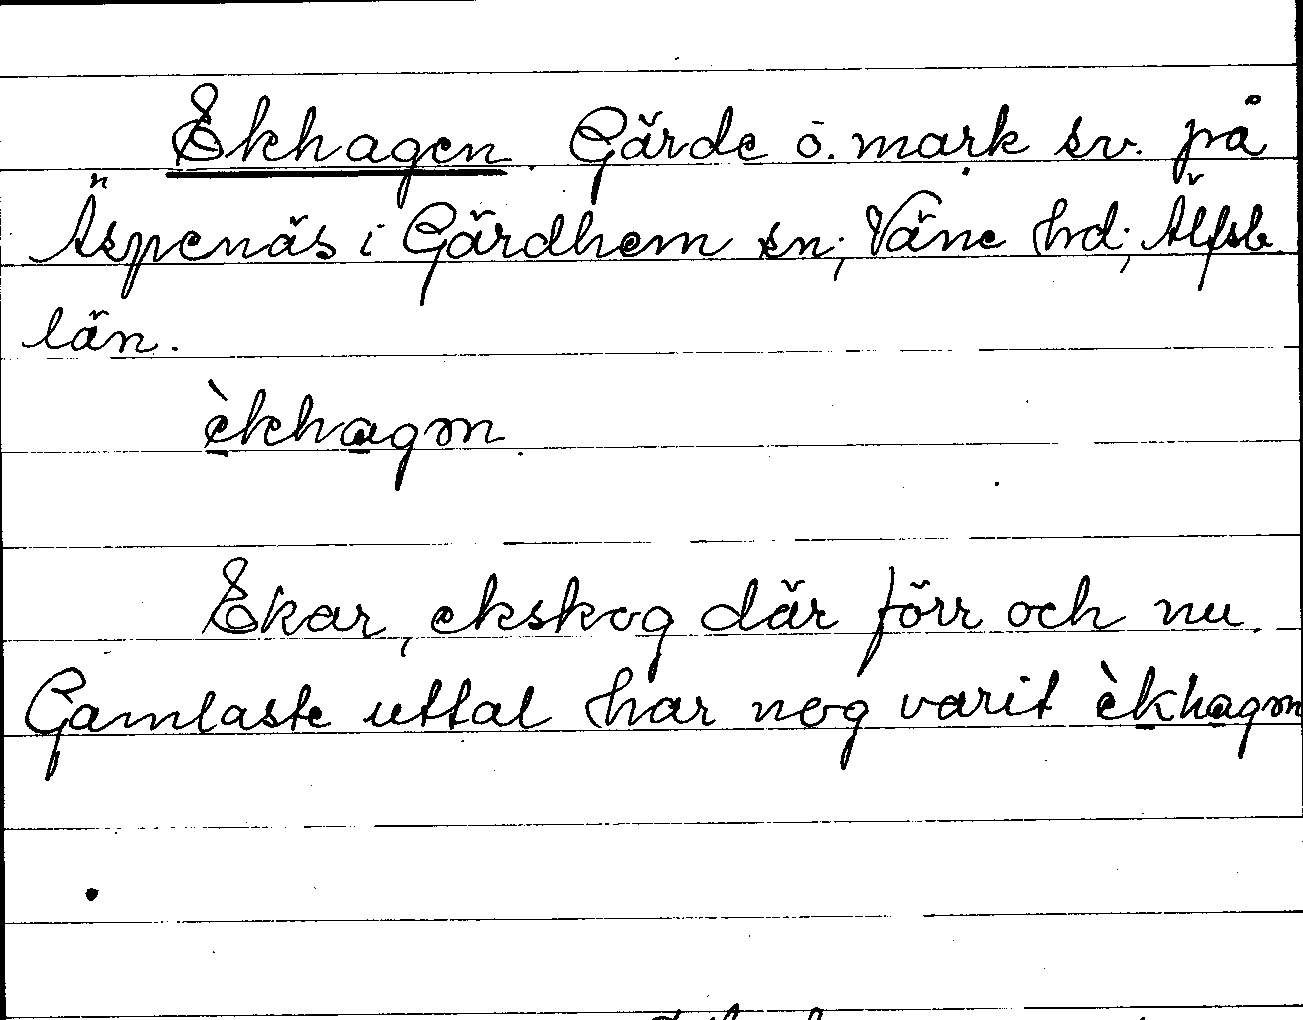 Ekhagen. Gärde o. mark sv. på
Äspenäs i Gärdhem sn; Väne hd; Älfsb.
län.
èkhagm.
Ekar, ekskog där förr och nu.
Gamlaste uttal har nog varit èkhagm